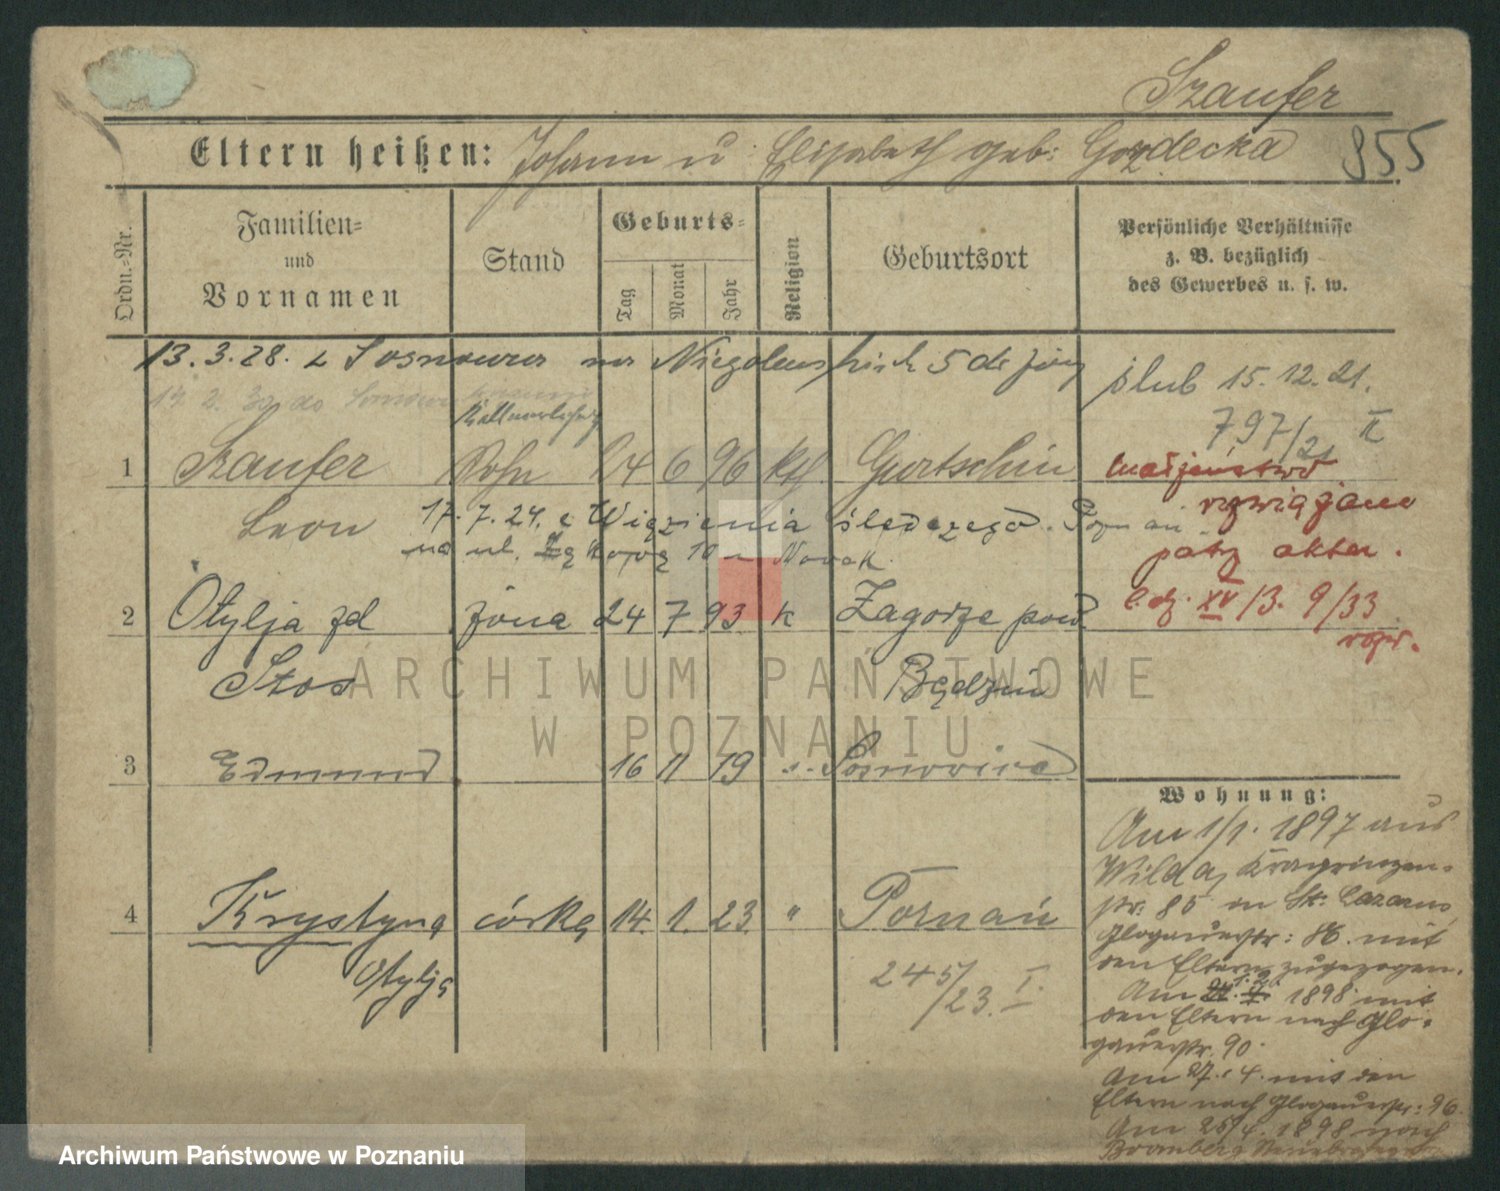 Szaufer
Eltern heißen: Johann u Elisabeth geb: Gozdecka 855
Ordn.-Nr.
Familien-
und
Vornamen
Stand
Geburts-
Tag Monat Jahr
Religion
Geburtsort
Persönliche Verhältnisse
z. B. bezüglich
des Gewerbes u. s. w.
13.3.28. z Sosnowca na 5 do
ślub 15.12.21.
797/21 II
1 Szaufer Sohn 24 6 96 kth. Gurtschin
małżeństwo
rozwiązane
Leon 17.7.24. z Więzienia śledczego. Poznań
na ul. 10 Nowak
patrz akta.
l.dz. XV/3. 9/33
2 Otylja zd żona 24 7 93 k Zagórze pow.
Stos Będzin
3 Edmund 16 11 19 Sosnowice
4 Krystyna córka 14. 1. 23. " Poznań
Otylja
245/23. I.
Wohnung:
Am 1/1. 1897 aus
Wilda, Kronprinzen-
str: 85 in St: Lazarus,
Glogauerstr: 86. mit
den Eltern zugezogen.
Am 1.2. 1898 mit
den Eltern nach Glo-
gauerstr. 90.
Am 27.4. mit den
Eltern nach Glogauerstr: 96.
Am 25/4. 1898 nach
Bromberg
ARCHIWUM PAŃSTWOWE
W POZNANIU
Archiwum Państwowe w Poznaniu